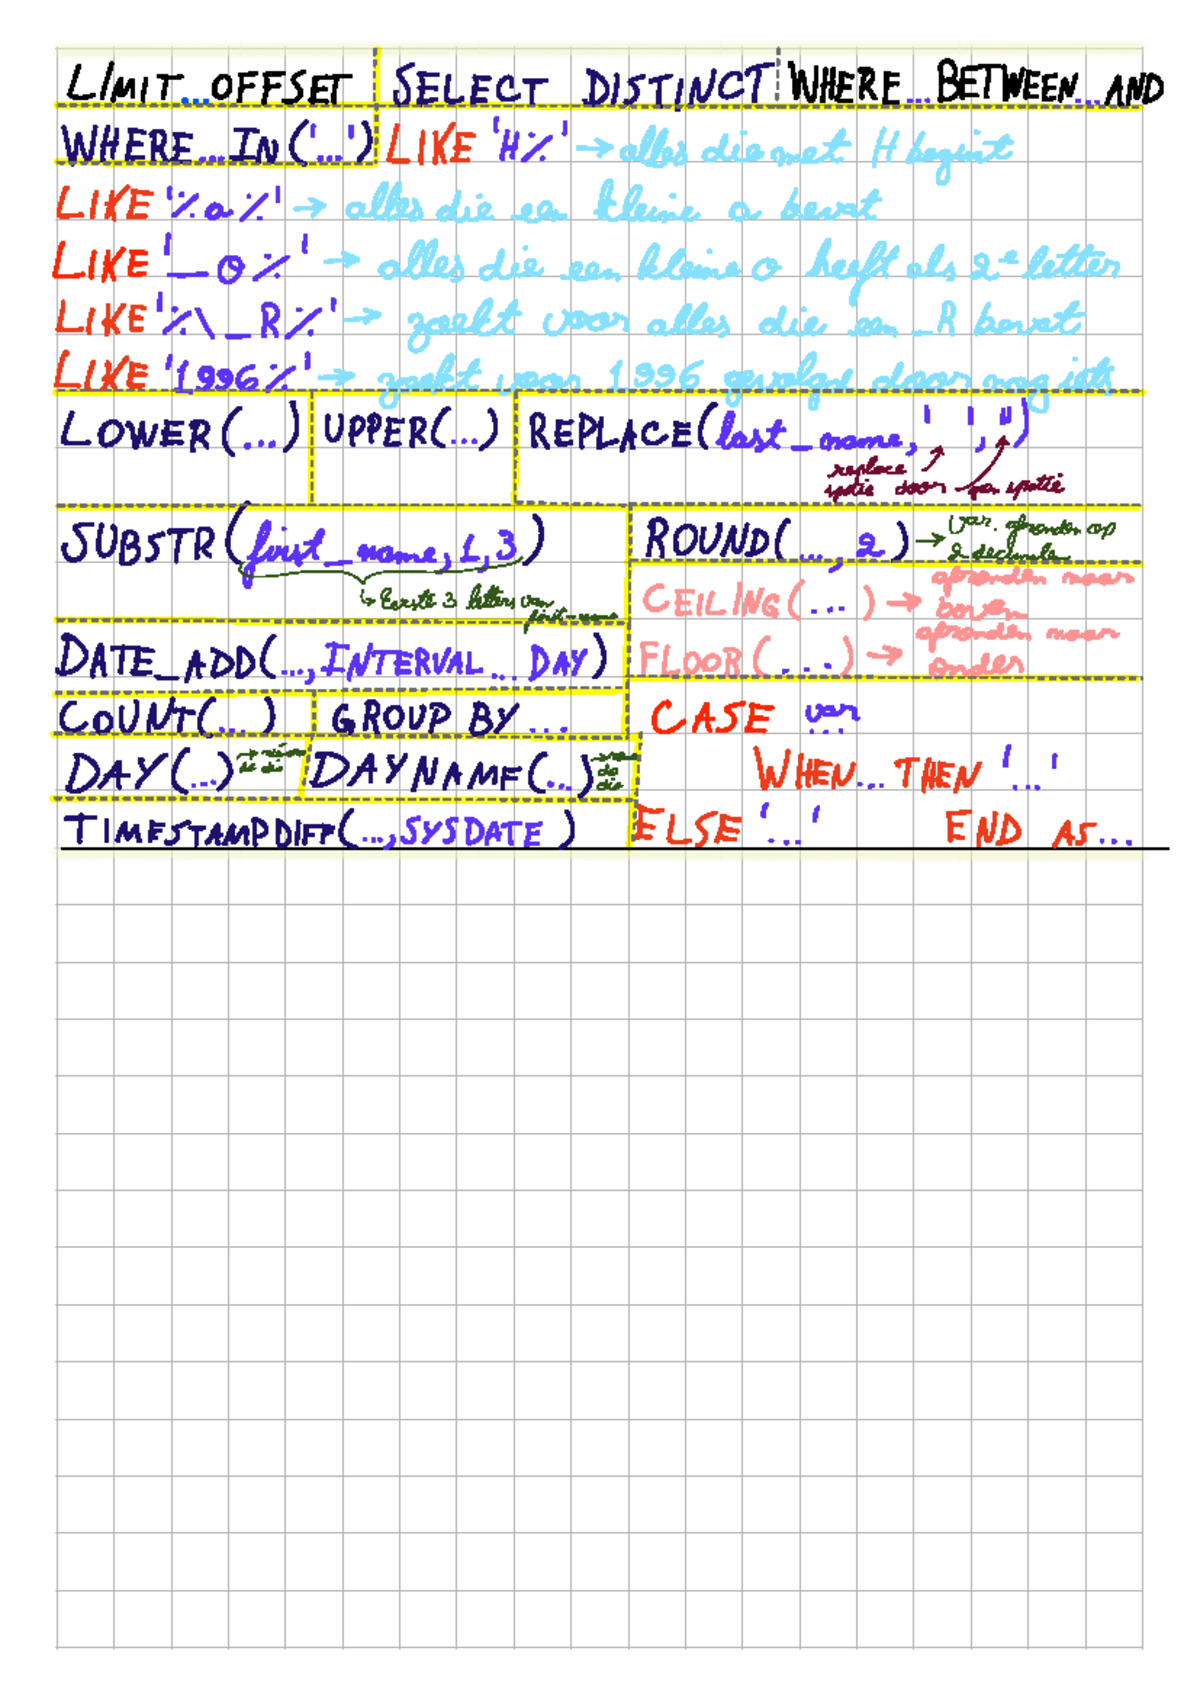 LIMIT...OFFSET SELECT DISTINCT WHERE...BETWEEN...AND
WHERE...IN('...') LIKE 'H%' → alles die met H begint
LIKE '%a%' → alles die een kleine a bevat
LIKE '_o%' → alles die een kleine o heeft als 2e letter
LIKE '%\_R%' → zoekt voor alles die een _R bevat
LIKE '1996%' → zoekt voor 1996 gevolgd door nog iets
LOWER(...) UPPER(...) REPLACE(last_name,' ','')
replace
spatie door geen spatie
SUBSTR(first_name,1,3)
↳ Eerste 3 letters van
first-name
ROUND(...,2) → Var. afronden op
2 decimalen
CEILING(...) → afronden naar
boven
FLOOR(...) → afronden naar
onder
DATE_ADD(...,INTERVAL...DAY)
COUNT(...) GROUP BY ...
DAY(...) DAYNAME(...)
TIMESTAMPDIFF(...,SYSDATE )
CASE var
...
WHEN...THEN '...'
ELSE '...' END AS...